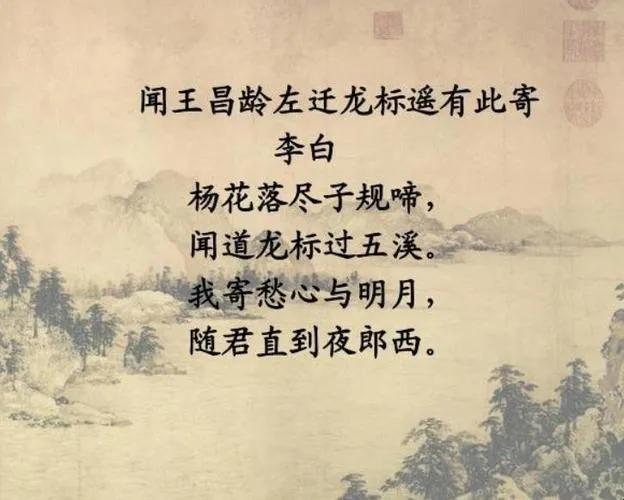 闻王昌龄左迁龙标遥有此寄
李白
杨花落尽子规啼，
闻道龙标过五溪。
我寄愁心与明月，
随君直到夜郎西。